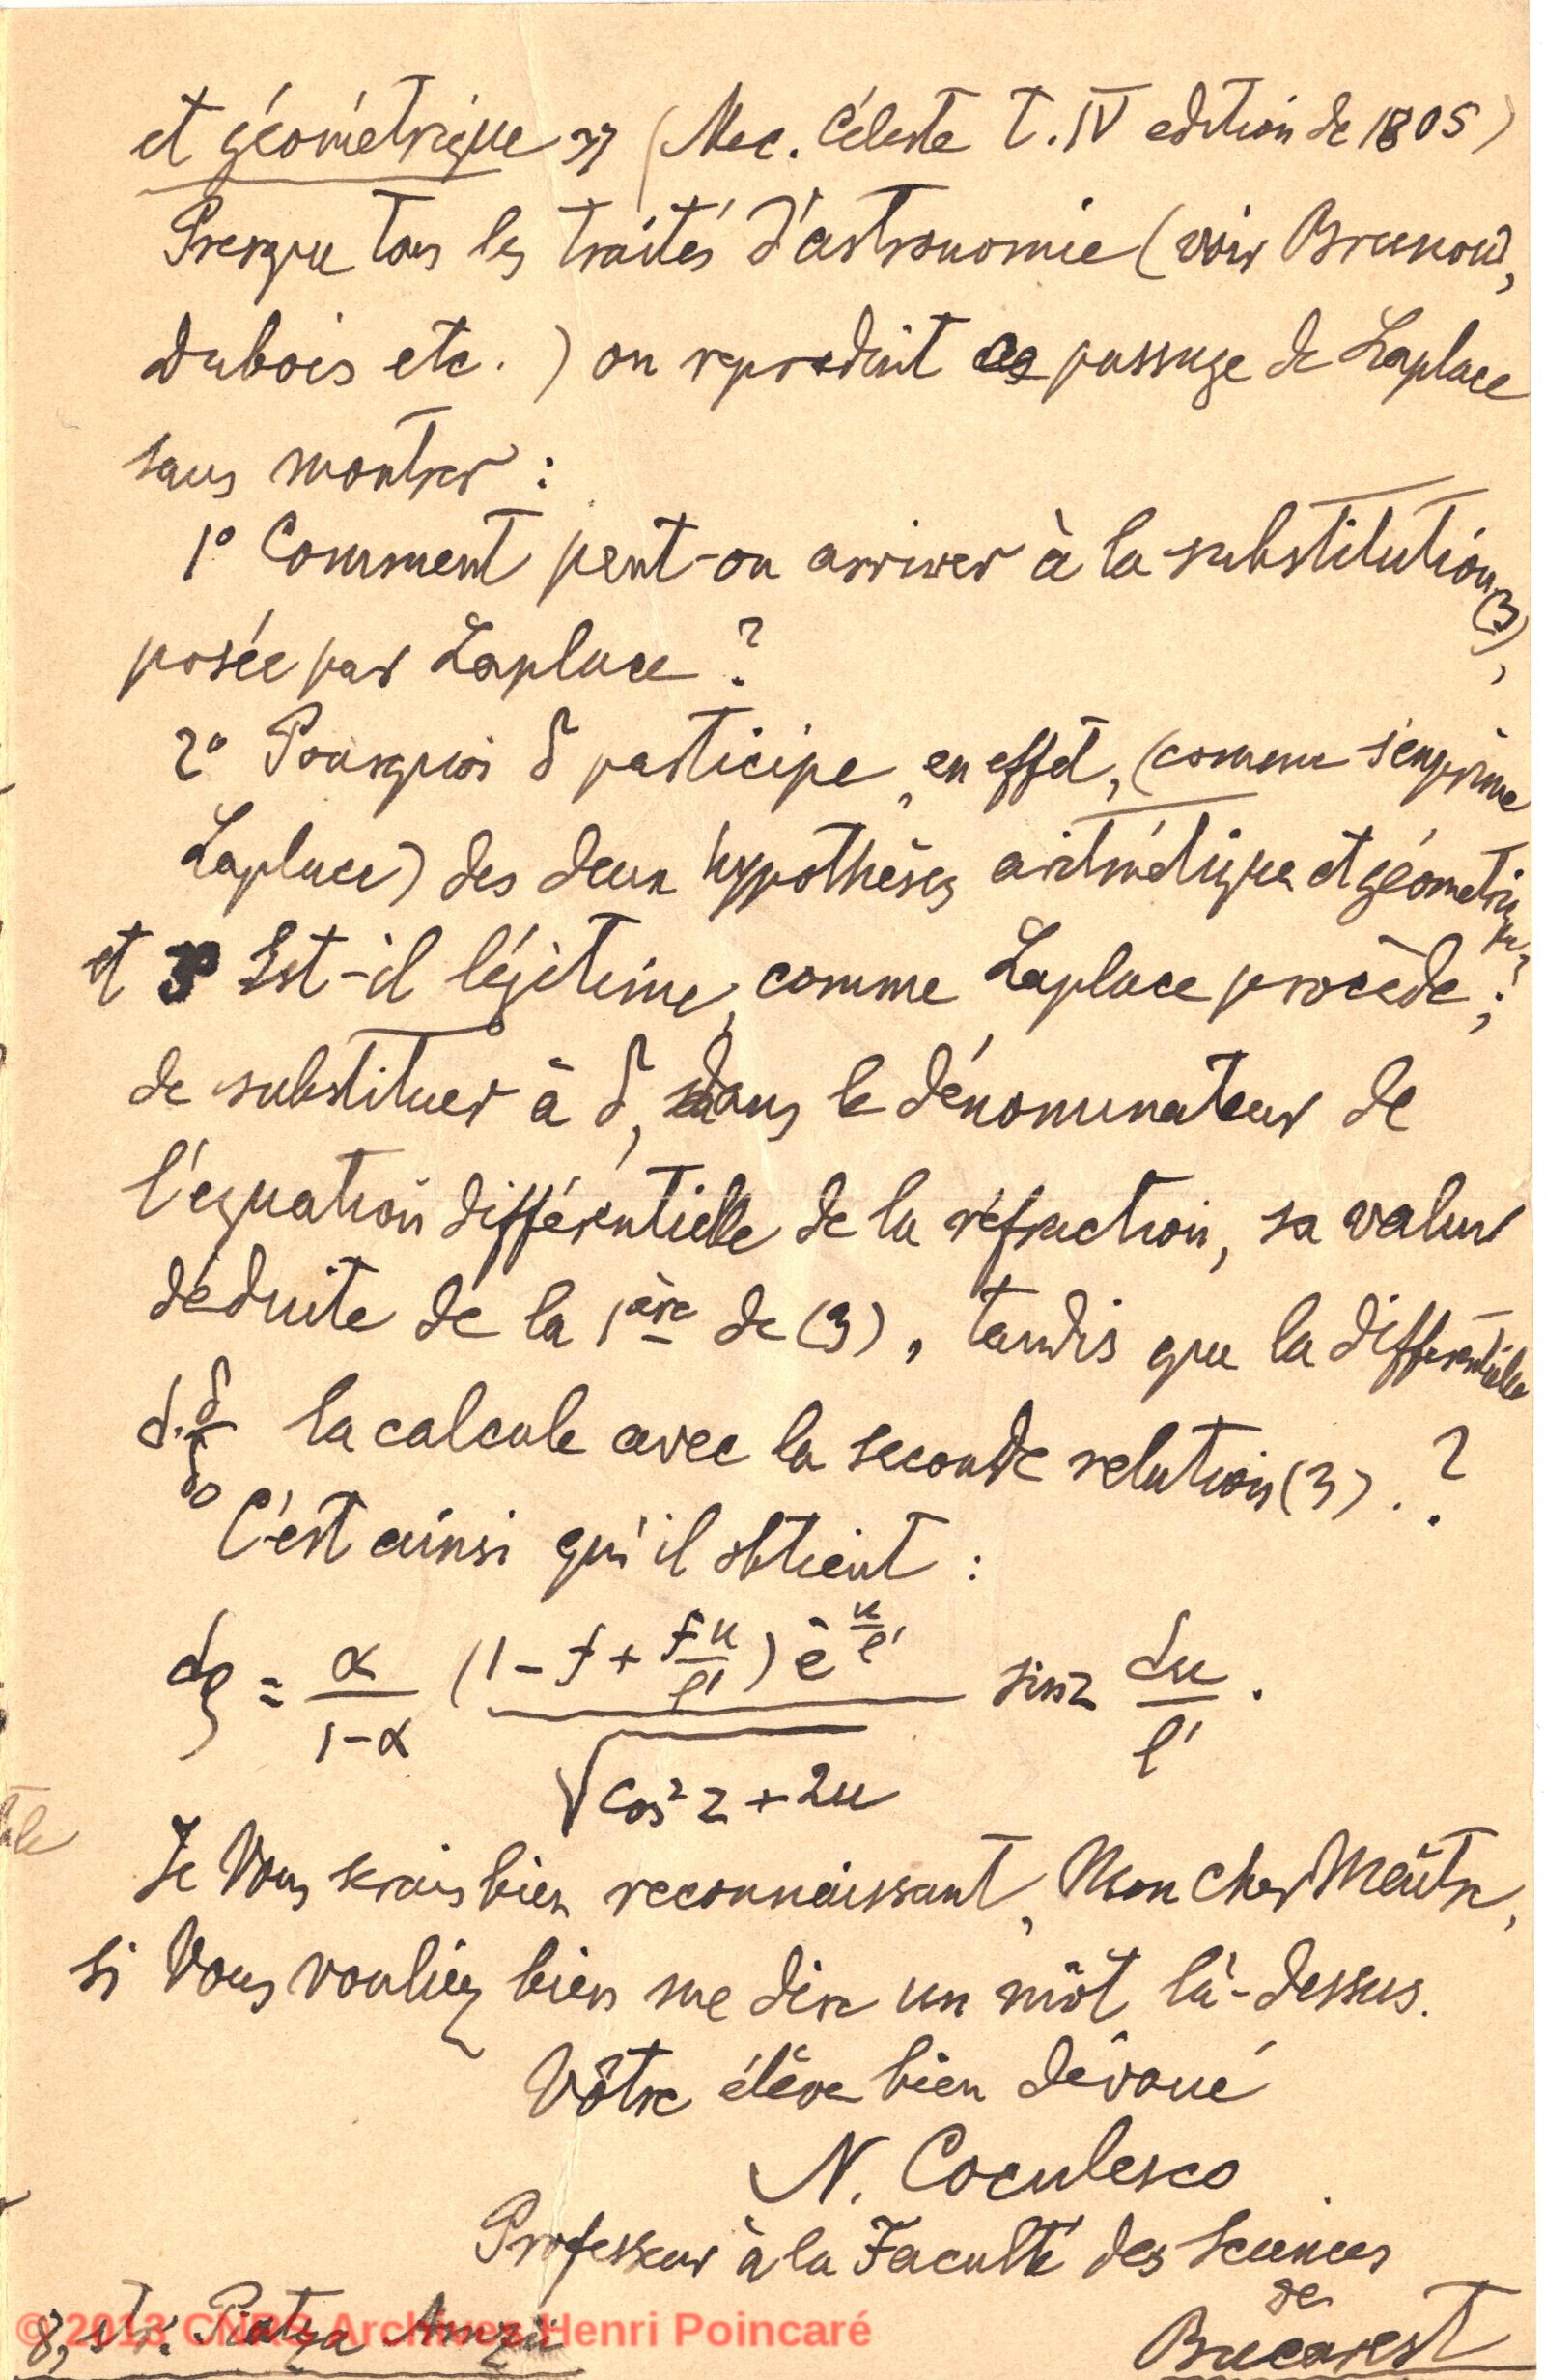 et géométrique » (Mec. Céleste T. IV edition de 1805)
Presque tous les traités d'astronomie (voir Brunow,
Dubois etc.) on reproduit ce passage de Laplace
sans montrer :
1° Comment peut-on arriver à la substitution (3),
posée par Laplace ?
2° Pourquoi δ participe, en effet, (comme s'exprime
Laplace) des deux hypothèses aritmétique et géometrique ?
et 3° Est-il légitime, comme Laplace procède,
de substituer à δ, dans le dénominateur de
l'équation différentielle de la réfraction, sa valeur
déduite de la 1ère de (3), tandis que la différentielle
d. δ/δ₀ la calcule avec la seconde relation (3). ?
C'est ainsi qu'il obtient :
dς = α/(1-α) (1 - f + fu/l') e^(-u/l') / √(cos² z + 2u) sin z du/l' .
Je Vous serais bien reconnaissant, Mon cher Maître,
si Vous vouliez bien me dire un môt là-dessus.
Vôtre élève bien dévoué
N. Coculesco
Professeur à la Faculté des Sciences
de
Bucarest
8, str. Piatza Amzii
© 2013 CNRS Archives Henri Poincaré